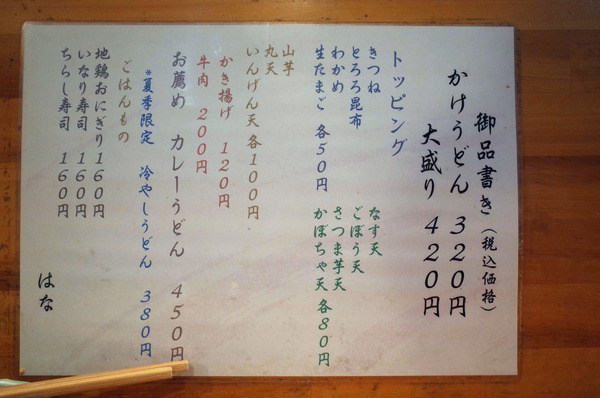 御品書き（税込価格）
かけうどん 320円
大盛り 420円
トッピング
きつね
とろろ昆布
わかめ
生たまご 各50円
なす天
ごぼう天
さつま芋天
かぼちゃ天 各80円
山芋
丸天
いんげん天 各100円
かき揚げ 120円
牛肉 200円
お薦め カレーうどん 450円
*夏季限定 冷やしうどん 380円
ごはんもの
地鶏おにぎり 160円
いなり寿司 160円
ちらし寿司 160円
はな